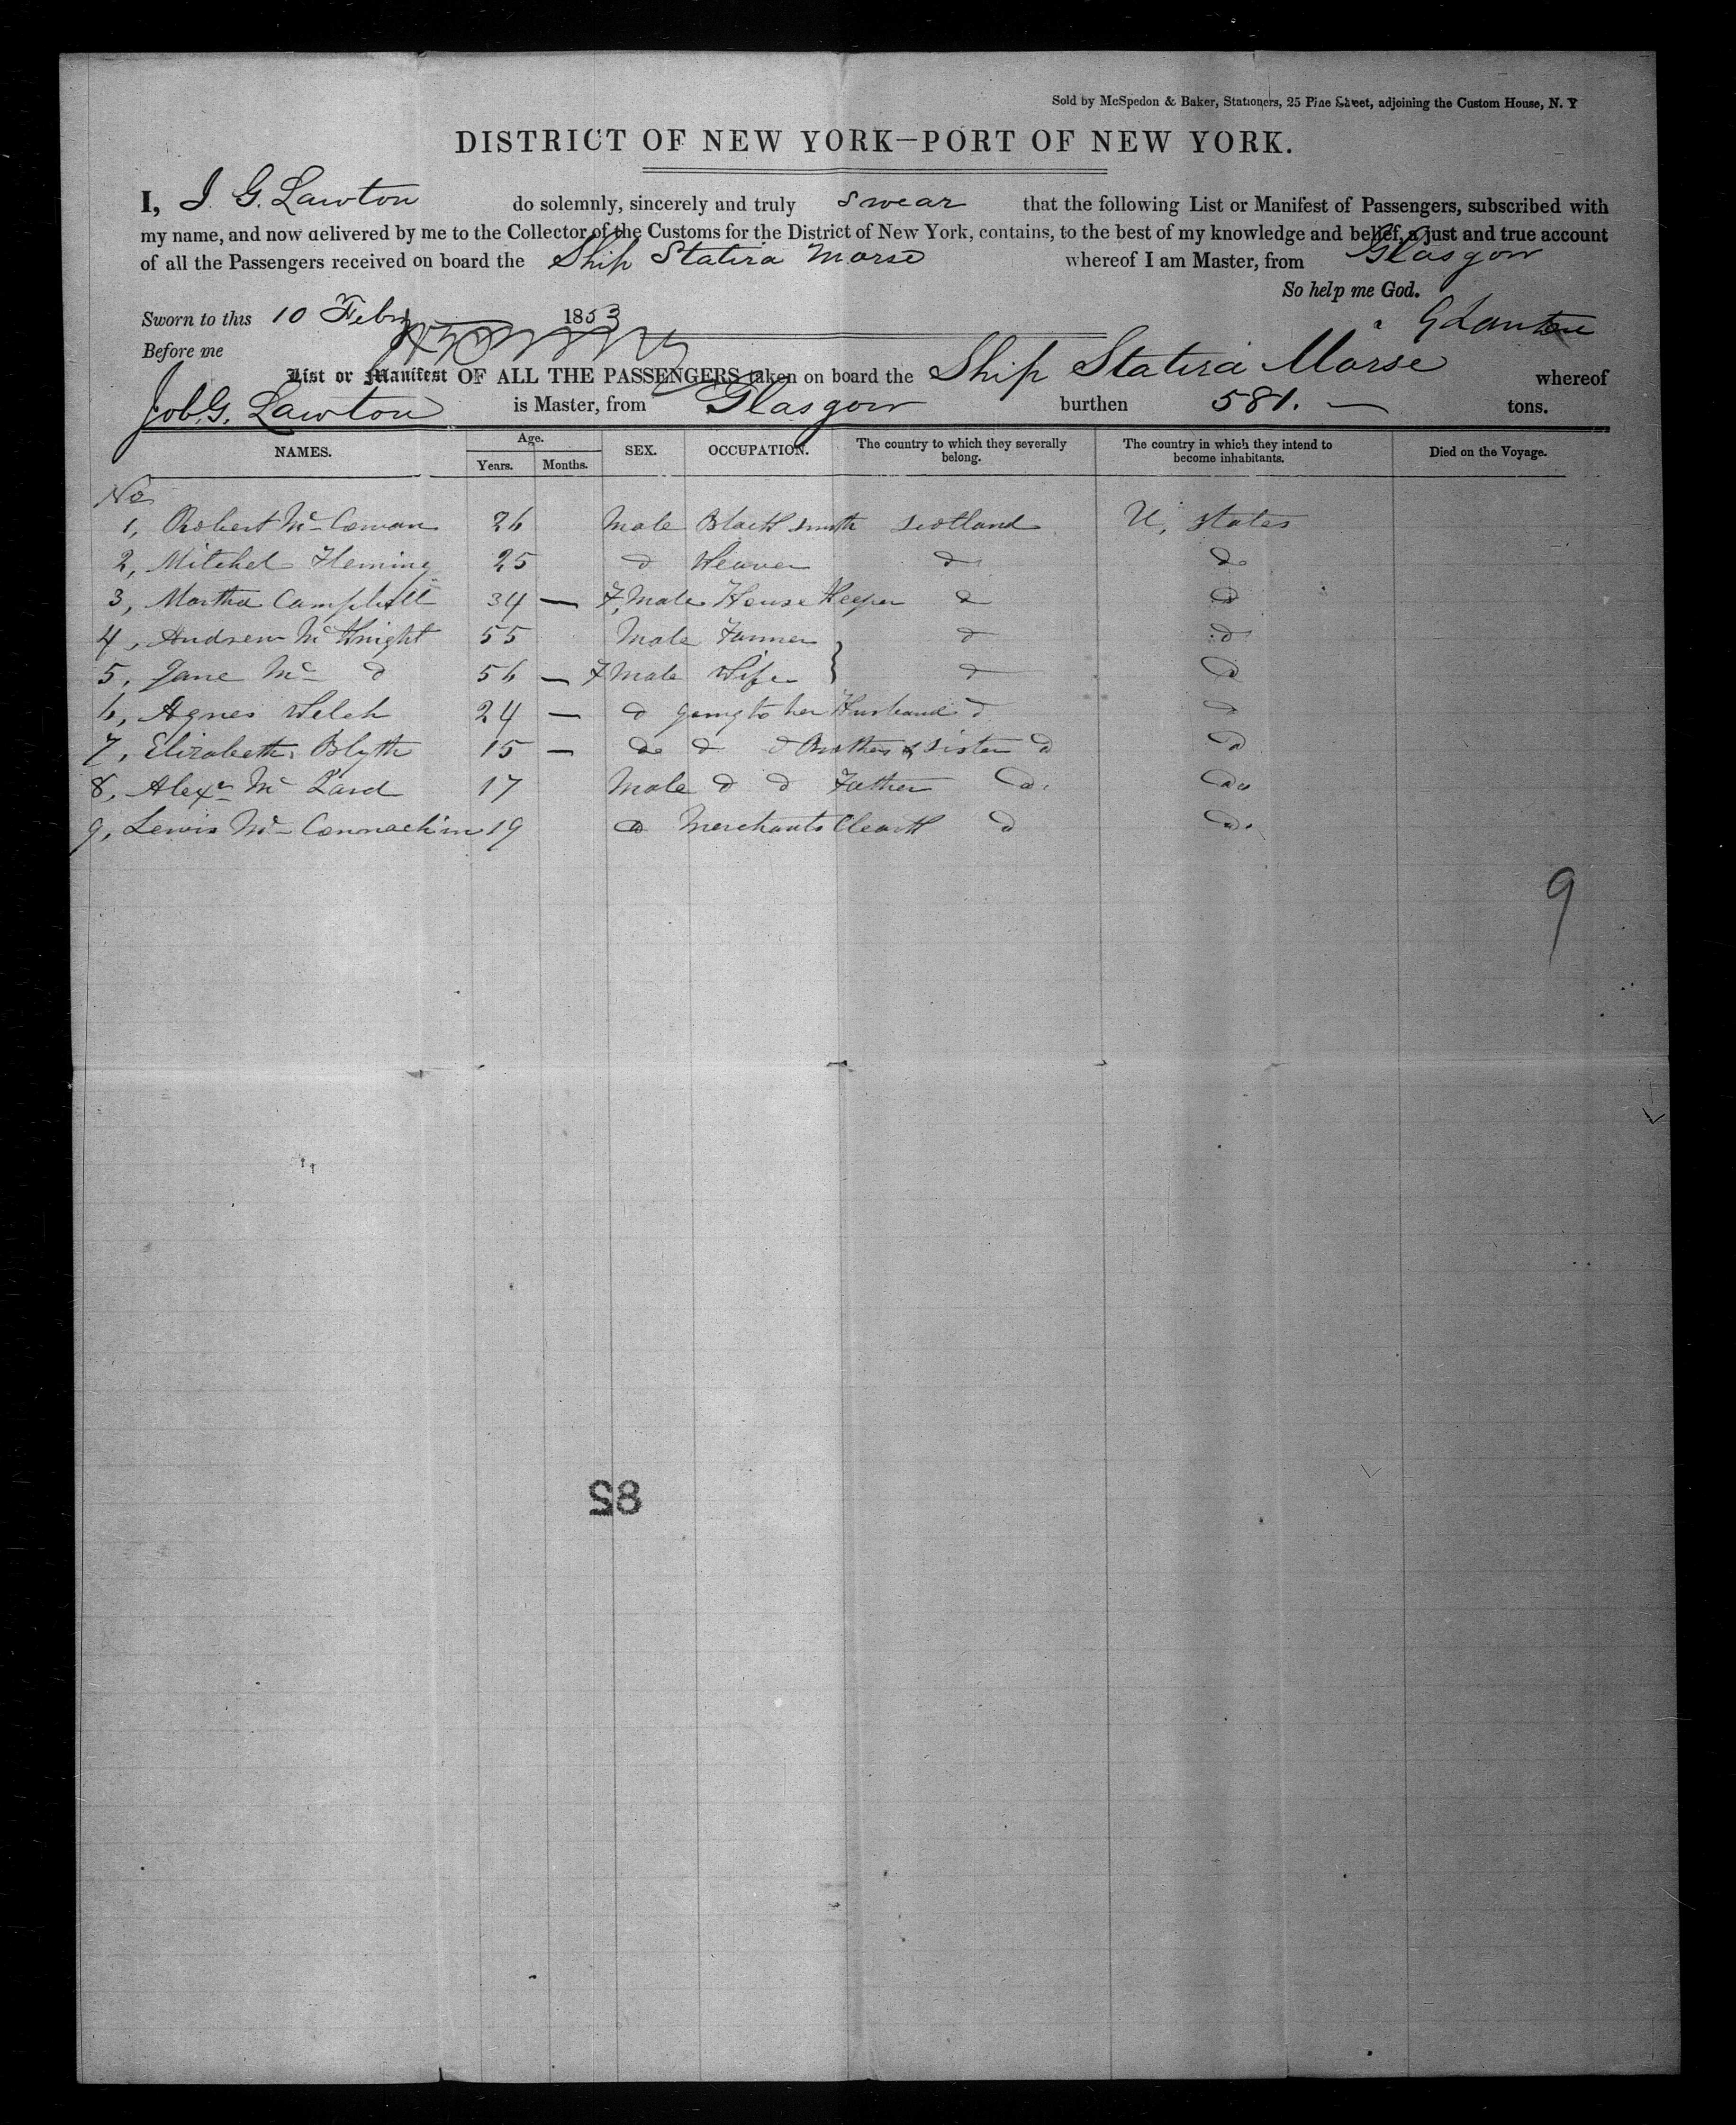 Sold by McSpedon & Baker, Stationers, 25 Pine Street, adjoining the Custom House, N. Y
DISTRICT OF NEW YORK—PORT OF NEW YORK.
I, J. G. Lawton do solemnly, sincerely and truly swear that the following List or Manifest of Passengers, subscribed with
my name, and now delivered by me to the Collector of the Customs for the District of New York, contains, to the best of my knowledge and belief, a just and true account
of all the Passengers received on board the Ship Statira Morse whereof I am Master, from Glasgow
So help me God.
Sworn to this 10 Feby 1853
G Lawton
Before me
List or Manifest OF ALL THE PASSENGERS taken on board the Ship Statira Morse whereof
Job. G. Lawton is Master, from Glasgow burthen 581. — tons.
NAMES. Age. Years. Months. SEX. OCCUPATION. The country to which they severally belong. The country in which they intend to become inhabitants. Died on the Voyage.
No
1, Robert Mc Cowan 26 Male Black smith Scotland U, States
2, Mitchel Fleming 25 d Weaver d do
3, Martha Campbell 34 — F,Male House Keeper d d
4, Andrew Mc Knight 55 Male Farmer } d d
5, Jane Mc d 56 — F Male Wife d d
6, Agnes Welch 24 — d going to her Husband d d
7, Elizabeth Blyth 15 — do d d Brother & Sister d d
8, Alexr Mc Lard 17 Male d d Father do. do
9, Lewis Mc 19 d Merchants Cleark d do.
9
85